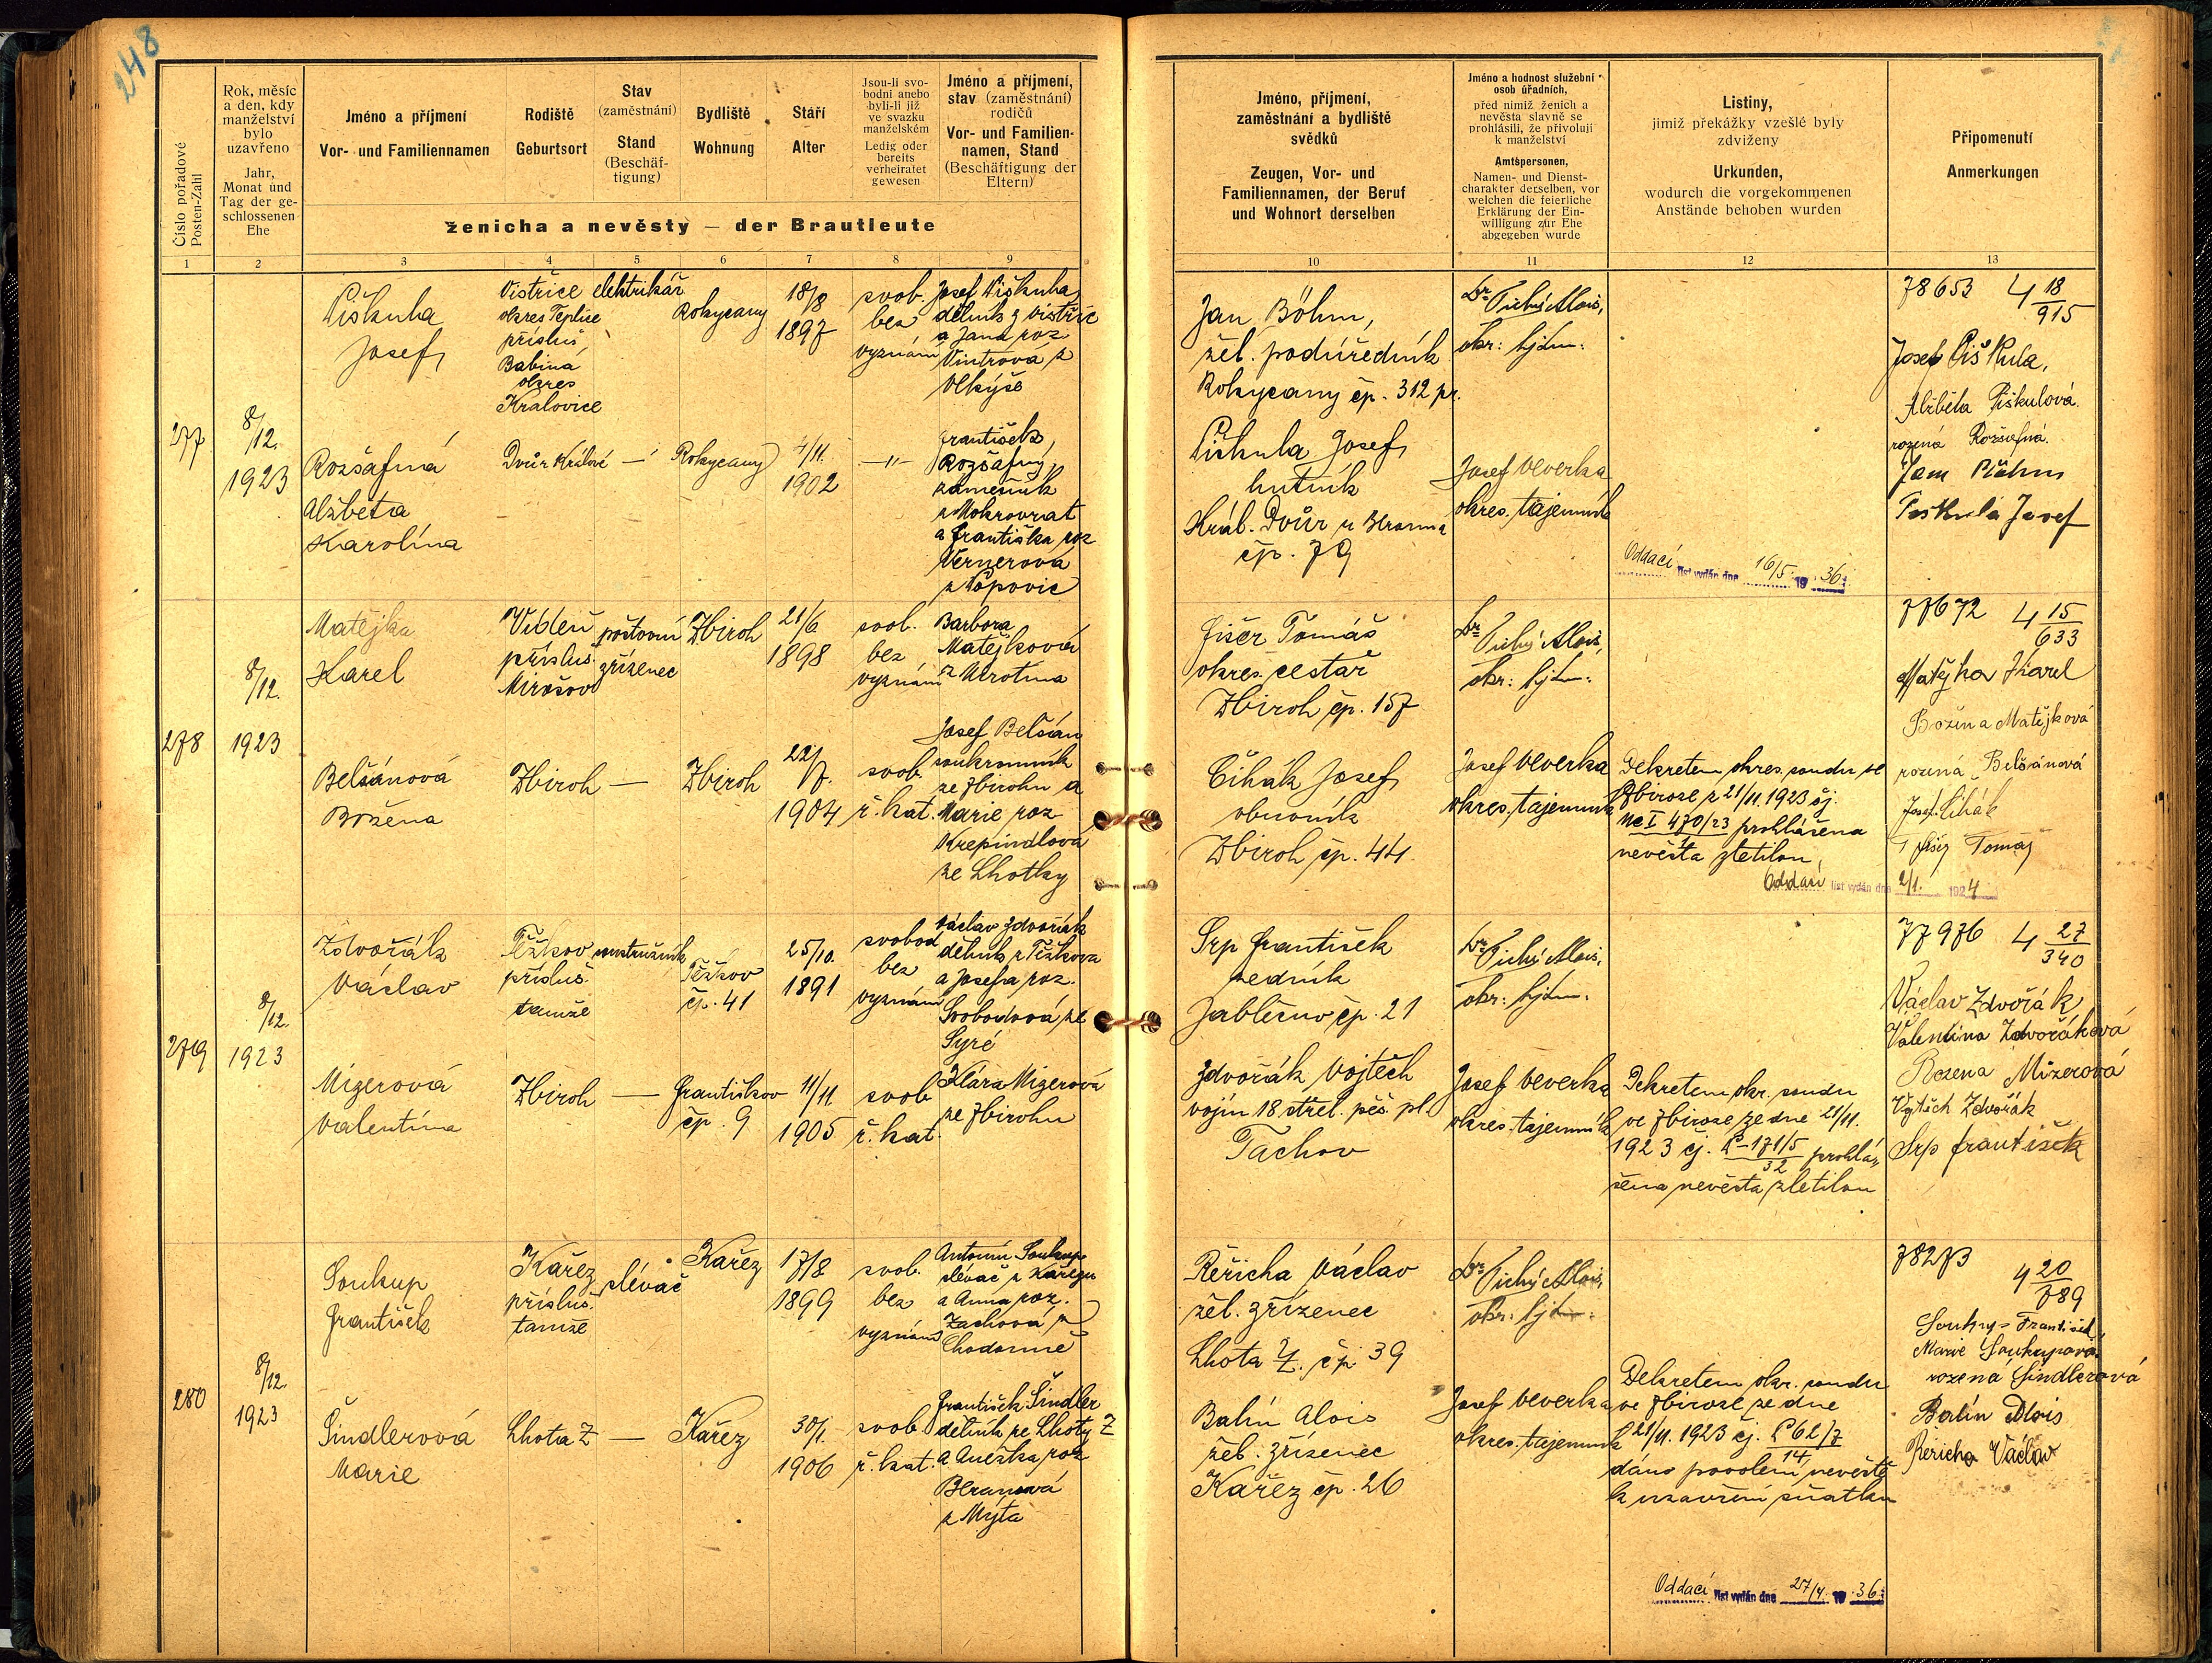 248
Číslo pořadové
Posten-Zahl
Rok, měsíc
a den, kdy
manželství
bylo
uzavřeno
Jahr,
Monat und
Tag der ge-
schlossenen
Ehe
Jméno a příjmení
Vor- und Familiennamen
Rodiště
Geburtsort
Stav
(zaměstnání)
Stand
(Beschäf-
tigung)
Bydliště
Wohnung
Stáří
Alter
Jsou-li svo-
bodni anebo
byli-li již
ve svazku
manželském
Ledig oder
bereits
verheiratet
gewesen
Jméno a příjmení,
stav (zaměstnání)
rodičů
Vor- und Familien-
namen, Stand
(Beschäftigung der
Eltern)
ženicha a nevěsty — der Brautleute
1 2 3 4 5 6 7 8 9
277
8/12.
1923
Piškula
Josef
Vistřice
okres Teplice
přísluš.
Babina
okres
Kralovice
elektrikář
Rokycany
18/8
1897
svob.
bez
vyznám
Josef Piškula
dělník z Vistřice
a Jana roz.
Vintrova z
Rozšafná
Alžběta
Karolína
Dvůr Králové
—
Rokycany
4/11.
1902
—"—
František
Rozšafný
zámečník
z Mokrovrat
a Františka roz
Vernerová
278
8/12.
1923
Matějka
Karel
Vídeň
přísluš.
Mirošov
poštovní
zřízenec
Zbiroh
21/6
1898
svob.
bez
vyznám
Barbora
Matějková
Belšánová
Božena
Zbiroh
—
Zbiroh
22/7.
1904
svob.
ř. kat.
Josef Belšán
soukromník
ze Zbirohu a
Marie roz
Krepindlova
ze Lhotky
279
8/12.
1923
Zdvořák
Václav
Těškov
přísluš.
tamže
soustružník
Těškov
čp. 41
25/10.
1891
svobod
bez
vyznám
Václav Zdvořák
dělník z Těškova
a Josefa roz.
Svobodová ze
Syré
Mizerová
Valentína
Zbiroh
—
Františkov
čp. 9
11/11
1905
svob
ř. kat.
Klára Mizerová
ze Zbirohu
280
8/12.
1923
Soukup
František
Kařez
přísluš.
tamže
slévač
Kařez
17/8
1899
svob.
bez
vyznám
Antonín Soukup
slévač z Kařezu
a Anna roz.
Zachová z
Šindlerová
Marie
Lhota Z
—
Kařez
30/1.
1906
svob
ř. kat.
František Šindler
dělník ze Lhoty Z
a Anežka roz
Beranová
z Mýta
Jméno, příjmení,
zaměstnání a bydliště
svědků
Zeugen, Vor- und
Familiennamen, der Beruf
und Wohnort derselben
Jméno a hodnost služební
osob úřadních,
před nimiž ženich a
nevěsta slavně se
prohlásili, že přivolují
k manželství
Amtspersonen,
Namen- und Dienst-
charakter derselben, vor
welchen die feierliche
Erklärung der Ein-
willigung zur Ehe
abgegeben wurde
Listiny,
jimiž překážky vzešlé byly
zdviženy
Urkunden,
wodurch die vorgekommenen
Anstände behoben wurden
Připomenutí
Anmerkungen
10 11 12 13
Jan Böhm,
žel. podúředník
Rokycany čp. 312 pr.
Piškula Josef
hutník
Král. Dvůr u Berouna
čp. 79
Dr Tichý Alois,
okr: hejtm:
Josef Veverka
okres. tajemník
Oddací list vydán dne 16/5 1936
78653 4 18/915
Josef Piškula,
Alžběta Piškulová
rozená Rozšafná.
Jan Böhm
Piskula Josef
Fišer Tomáš
okres. cestář
Zbiroh čp. 157
Čihák Josef
obuvník
Zbiroh čp. 44.
Dr Tichý Alois,
okr: hejtm:
Josef Veverka
okres. tajemník
Dekretem okres. soudu ve
Zbiroze z 21/11. 1923 čj.
Nc I 470/23 prohlášena
nevěsta zletilou,
Oddací list vydán dne 2/1. 1924
77672 4 15/633
Matějka Karel
Božena Matějková
rozená Belšánová
Josef Čihák
Fišer Tomáš
Srp František
zedník
Jablečno čp. 21
Zdvořák Vojtěch
vojín 18 střel. pěš. pl.
Tachov
Dr Tichý Alois,
okr: hejtm:
Josef Veverka
okres. tajemník
Dekretem okr. soudu
ve Zbiroze ze dne 21/11.
1923 čj. P-171/5/32 prohlá-
šena nevěsta zletilou
77976 4 27/340
Václav Zdvořák
Valentina Zdvořáková
Rozena Mizerová
Vojtěch Zdvořák
Srp František
Řeřicha Václav
žel. zřízenec
Lhota Z. čp 39
Balín Alois
žel. zřízenec
Kařez čp. 26
Dr Tichý Alois,
okr: hejtm:
Josef Veverka
okres. tajemník
Dekretem okr. soudu
ve Zbiroze ze dne
21/11. 1923 čj. P 62/7/14
dáno povolení nevěstě
k uzavření sňatku
Oddací list vydán dne 27/4. 1936
78273 4 20/789
Soukup František
Marie Soukupová
rozená Šindlerová
Balín Alois
Řeřicha Václav